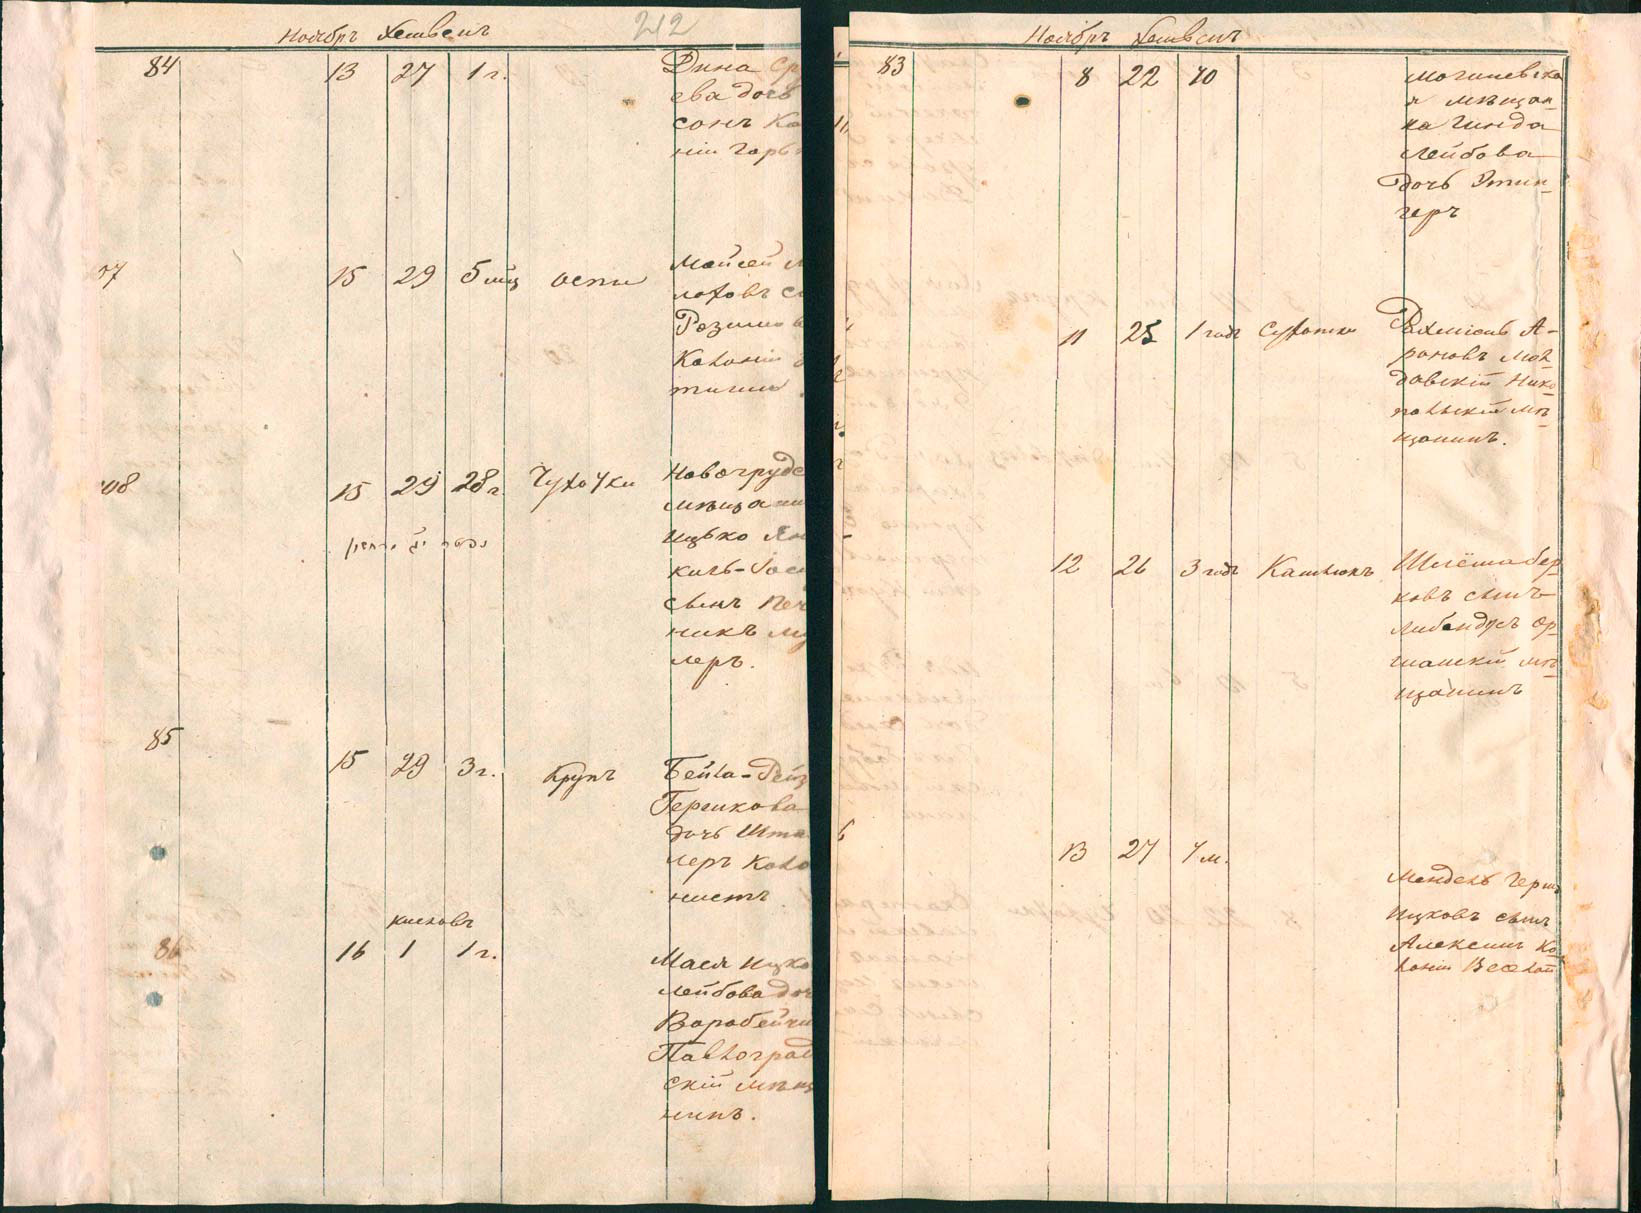 Ноябрь Хешвенъ 212
84 13 27 1 г. Дина
ева дочь
сонъ Ко
ніи Горь
15 29 5 мѣц оспы Мойсей
Розинов
Колоніи
08 15 29 28 г. Чухочки Новогрудс
мѣщани
Ицько Ян
кель-Іос
сынъ Печ
никъ
леръ.
85
15 29 3 г. Крупъ Бейла-Рейз
Гершкова
дочь Шта
леръ Коло
нистъ
кислевъ
86 16 1 1 г. Мася Ицко
Лейбова доч
Воробейчи
Павлоград
скій мѣща
нинъ.
Ноябрь Хешвенъ
83 8 22 70 Могилевска
я мѣщан-
ка Гинда
Лейбова
дочь Этин-
геръ
11 25 1 годъ Сухотки Рахмиель А-
роновъ Мол
давскій Нико
польскій мѣ-
щанинъ.
12 26 3 годъ Кашлюкъ Шлёма Бер-
ковъ сынъ
Либандусъ Ор-
шанскій мѣ-
щанинъ
13 27 7 м.
Мендель Герш
Ицковъ сынъ
Алексинъ Ко-
лоніи Веселой